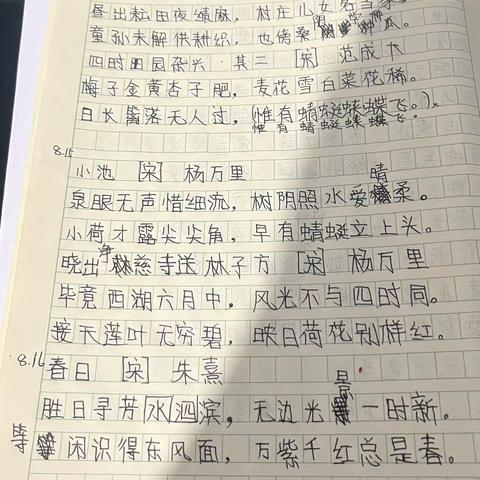 昼出耘田夜绩麻，村庄儿女各当家。
童孙未解供耕织，也傍桑阴学种瓜。
四时田园杂兴·其二 [宋] 范成大
梅子金黄杏子肥，麦花雪白菜花稀。
日长篱落无人过，(惟有蜻蜓蛱蝶飞。)
惟有蜻蜓蛱蝶飞。
8.15
小池 [宋] 杨万里
泉眼无声惜细流，树阴照水爱晴柔。
小荷才露尖尖角，早有蜻蜓立上头。
晓出净慈寺送林子方 [宋] 杨万里
毕竟西湖六月中，风光不与四时同。
接天莲叶无穷碧，映日荷花别样红。
8.16
春日 [宋] 朱熹
胜日寻芳泗水滨，无边光景一时新。
等闲识得东风面，万紫千红总是春。